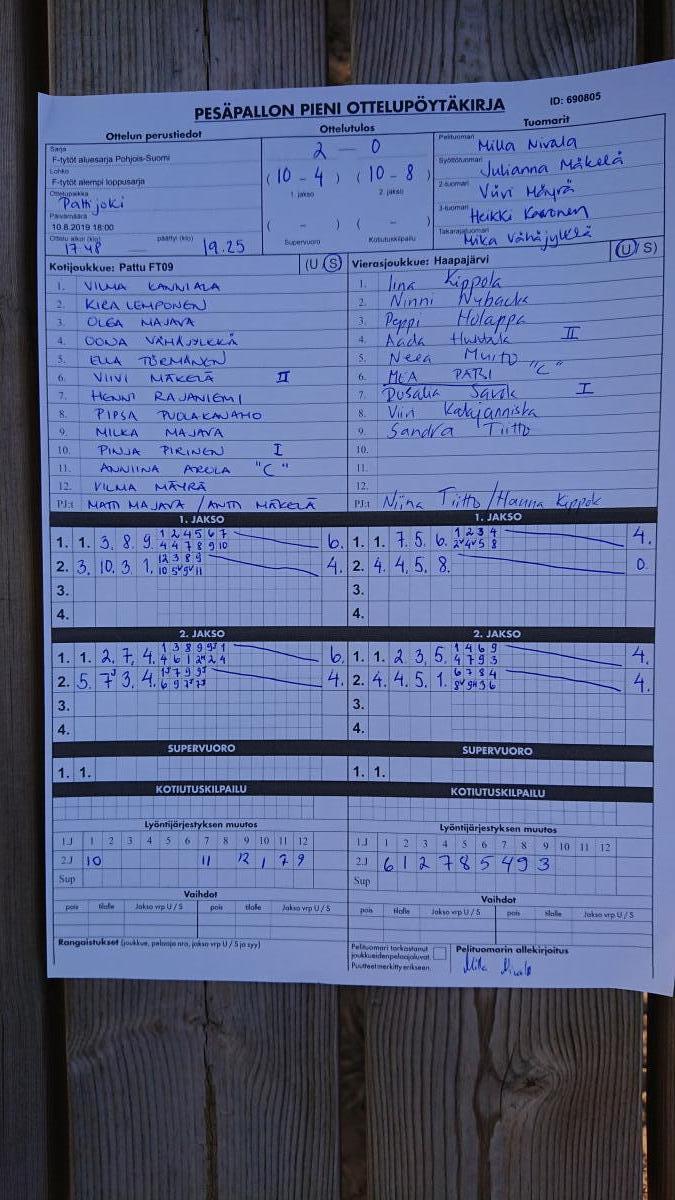 PESÄPALLON PIENI OTTELUPÖYTÄKIRJA ID: 690805
Ottelun perustiedot Ottelutulos Tuomarit
Sarja
F-tytöt aluesarja Pohjois-Suomi
Lohko
F-tytöt alempi loppusarja
Ottelupaikka
Pattijoki
Päivämäärä
10.8.2019 18:00
Ottelu alkoi (klo) päättyi (klo)
17.48 — 19.25
2 — 0
(10 - 4) (10 - 8)
1. jakso 2. jakso
( - ) ( - )
Supervuoro Kotiutuskilpailu
Pelituomari Milla Nivala
Syöttötuomari Julianna Mäkelä
2-tuomari Viivi Mäyrä
3-tuomari Heikki
Takarajatuomari Mika Vähäjylkkä
Kotijoukkue: Pattu FT09 (U S)
1. VILMA KANNIALA
2. KIRA LEMPONEN
3. OLGA MAJAVA
4. OONA VÄHÄJYLKKÄ
5. ELLA TÖRMÄNEN
6. VIIVI MÄKELÄ II
7. HENNI RAJANIEMI
8. PIPSA PUOLAKANAHO
9. MILKA MAJAVA
10. PINJA PIRINEN I
11. ANNIINA AROLA "C"
12. VILMA MÄYRÄ
PJ:t MATTI MAJAVA / ANTTI MÄKELÄ
Vierasjoukkue: Haapajärvi (U S)
1. Iina Kippola
2. Ninni Nybacka
3. Peppi Holappa
4. Aada II
5. Neea
6. MEA PATSI "C"
7. I
8. Viivi
9. Sandra Tiitto
10.
11.
12.
PJ:t Niina Tiitto / Hanna Kippola
1. JAKSO 1. JAKSO
1. 1. 3. 8. 9. 1 2 4 5 6 7 6.
4 4 7 8 9 10
2. 3. 10. 3. 1. 12 3 8 9 4.
3.
4.
1. 1. 7. 5. 6. 1 2 3 4 4.
2. 4. 4. 5. 8. 0.
3.
4.
2. JAKSO 2. JAKSO
1. 1. 2. 7. 4. 6.
2. 5. 7 3. 4. 4.
3.
4.
1. 1. 2. 3. 5. 1 4 6 9 4.
4 7 9 3
2. 4. 4. 5. 1. 6 7 8 4 4.
3.
4.
SUPERVUORO SUPERVUORO
1. 1. 1. 1.
KOTIUTUSKILPAILU KOTIUTUSKILPAILU
Lyöntijärjestyksen muutos Lyöntijärjestyksen muutos
1.J 1 2 3 4 5 6 7 8 9 10 11 12
2.J 10 11 12 1 7 9
Sup
1.J 1 2 3 4 5 6 7 8 9 10 11 12
2.J 6 1 2 7 8 5 4 9 3
Sup
Vaihdot Vaihdot
pois tilalle Jakso vrp U / S pois tilalle Jakso vrp U / S
pois tilalle Jakso vrp U / S pois tilalle Jakso vrp U / S
Rangaistukset (joukkue, pelaaja nro, jakso vrp U / S ja syy)
Pelituomari tarkastanut
joukkueidenpelaajaluvat.
Puutteet merkitty erikseen.
Pelituomarin allekirjoitus
Milla Nivala